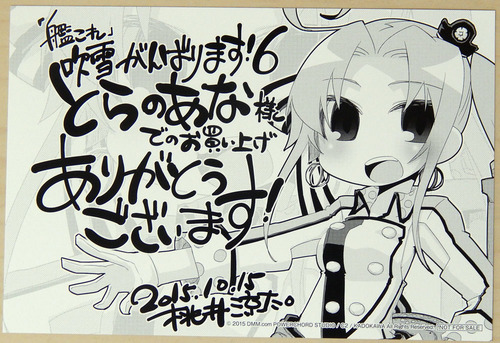 「艦これ」
吹雪がんばります!6
とらのあな様
でのお買い上げ
ありがとう
ございます!
2015.10.15
桃井
© 2015 DMM.com POWERCHORD STUDIO / C2 / KADOKAWA All Rights Reserved.
NOT FOR SALE